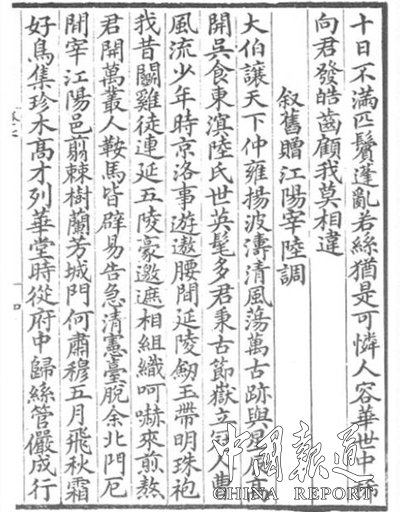 十日不滿匹鬢蓬亂若絲猶是可憐人容華世中稀
向君發皓齒顧我莫相違
叙舊贈江陽宰陸調
大伯讓天下仲雍揚波濤清風蕩萬古跡與星辰高
開吳食東溟陸氏世英髦多君秉古節嶽立冠人曹
風流少年時京洛事遊遨腰間延陵劒玉帶明珠袍
我昔鬬雞徒連延五陵豪邀遮相組織呵嚇來煎熬
君開萬叢人鞍馬皆辟易告急清憲臺脫余北門厄
間宰江陽邑翦棘樹蘭芳城門何肅穆五月飛秋霜
好鳥集珍木高才列華堂時從府中歸絲管儼成行
中國報道
CHINA REPORT